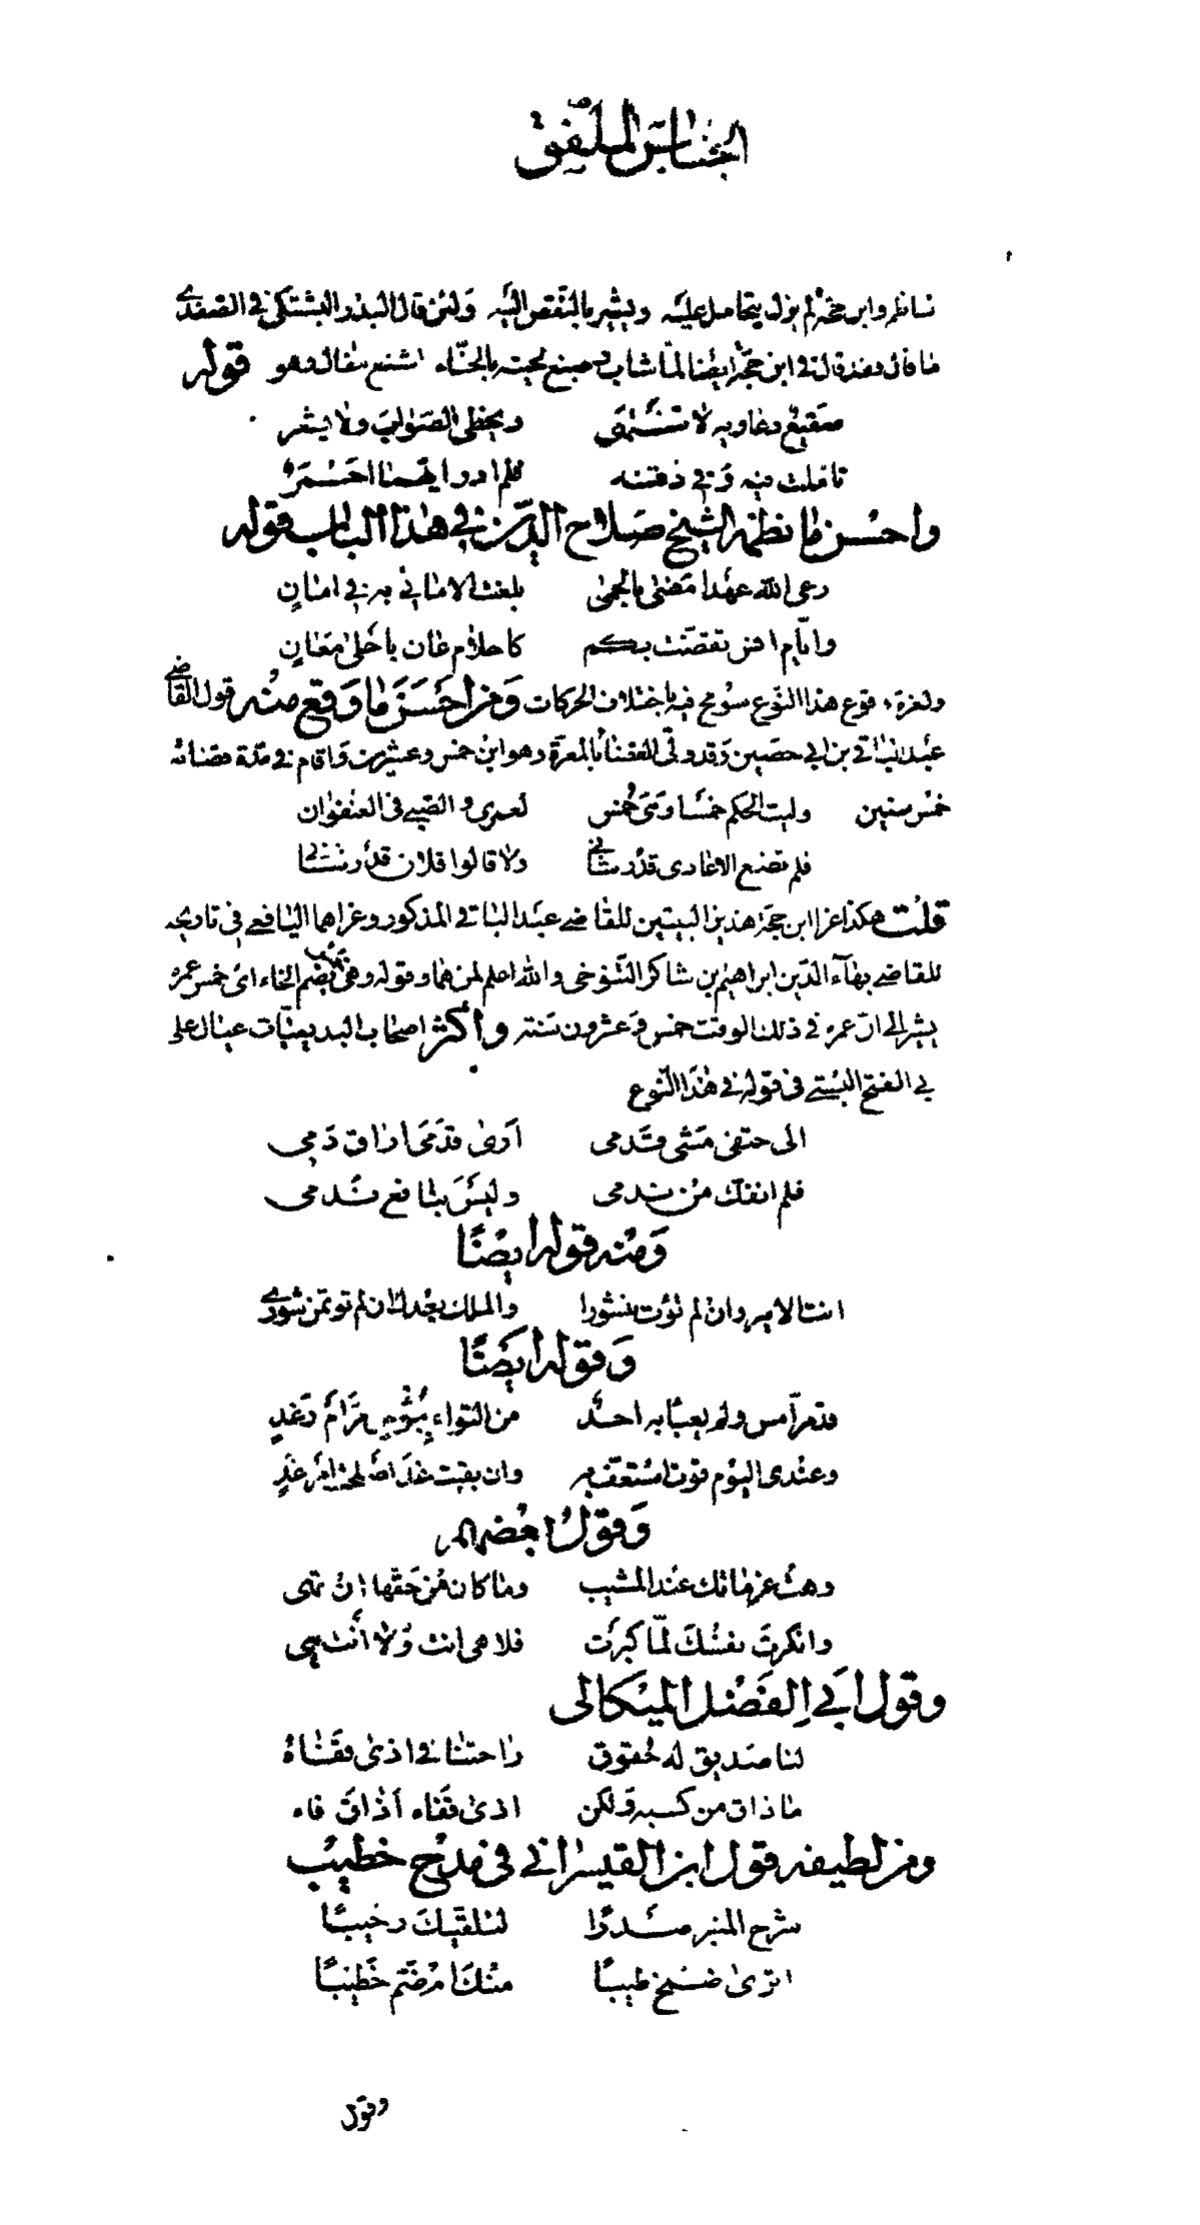 الجناس الملفق
ناظر وابن حجة لم يزل يتحامل عليه ويشير بالنقص اليه ولئن قال البدر البشتكي في الصفدي
ما قال فقد قال في ابن حجة ايضا لما شاب وصبغ لحيته بالحناء اشنع مقال وهو قوله
صقيع دعاويه لا تنتهى ويخطي الصواب ولا يشعر
تاملت فيه وفي ذقنه فلم ادر ايهما احمر
واحسن ما نظمه الشيخ صلاح الدين في هذا الباب قوله
رعى الله عهدا مضى بالحمى بلغت الاماني به في امان
وايام انس تقضت بكم كاحلام عان باحلى مغان
ولعزة وقوع هذا النوع سومح فيه باختلاف الحركات ومن احسن ما وقع منه قول القاضي
عبد الباقي بن ابي حصين وقد ولي القضا بالمعرة وهو ابن خمس وعشرين واقام في مدة قضائه
خمس سنين وليت الحكم خمسا وهى خمس لعمري والصبى في العنفوان
فلم تضع الاعادى قدر شاني ولا قالوا فلان قد رشاني
قلت هكذا عزا ابن حجة هذين البيتين للقاضي عبد الباقي المذكور وعزاهما اليافعي في تاريخه
للقاضي بهآء الدين ابراهيم بن شاكر التنوخى والله اعلم لمن هما وقوله وهى خمس بضم الخاء اى خمس عمره
يشير الى ان عمره في ذلك الوقت خمس وعشرون سنة واكثر اصحاب البديعيات عيال على
بي الفتح البستي في قوله في هذا النوع
الى حتفى مشى قدمى ارى قدمى اراق دمى
فلم انفك من ندمى وليس بنافع ندمى
ومنه قوله ايضا
انت الامير وان لم تؤت منشورا والملك بعدك ان لم تؤتمن شورى
وقوله ايضا
فتعر امس ولم يعبا به احد من التواء ببؤس مر ام رغد
وعندى اليوم قوت استعف به وان بقيت غدا اصلحت امر غد
وقول بعضهم
وهت عزماتك عند المشيب وما كان من حقها ان تهى
وانكرت نفسك لما كبرت فلا هى انت ولا أنت هى
وقول ابي الفضل الميكالى
لنا صديق له حقوق راحتنا في اذى قفاه
ما ذاق من كسبه ولكن اذى قفاه أذاق فاه
ومن لطيفه قول ابن القيسراني في مدح خطيب
شرح المنبر صدرا لتلقيك رحيبا
اترى ضم خطيبا منك ام ضمخ طيبا
وقول